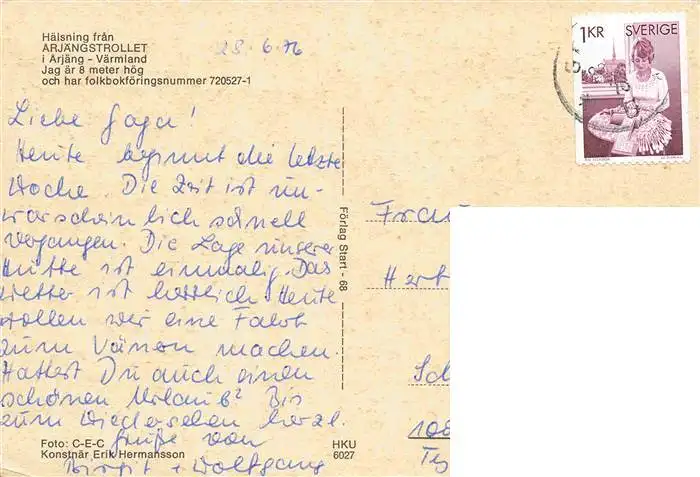 Hälsning från
ÅRJÄNGSTROLLET
i Årjäng - Värmland
Jag är 8 meter hög
och har folkbokföringsnummer 720527-1
28.6.76
1 KR SVERIGE
Liebe Gaga!
Heute beginnt die letzte
Woche. Die Zeit ist un-
warscheinlich schnell
vergangen. Die Lage unserer
Hütte ist einmalig. Das
Wetter ist herrlich. Heute
wollen wir eine Fahrt
zum Vänern machen.
Hattest Du auch einen
schönen Urlaub? Bis
zum Wiedersehen herzl.
Grüße von
Birgit + Wolfgang
Förlag Start - 68
Frau
Hert
Sch
108
Foto: C-E-C
Konstnär Erik Hermansson
HKU
6027